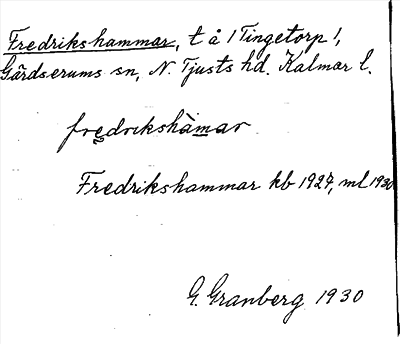 Fredrikshammar, t å ! Tingetorp !,
Gärdserums sn, N. Tjusts hd. Kalmar l.
fredrikshàmar
Fredrikshammar kb 1927, ml 1930
G. Granberg 1930